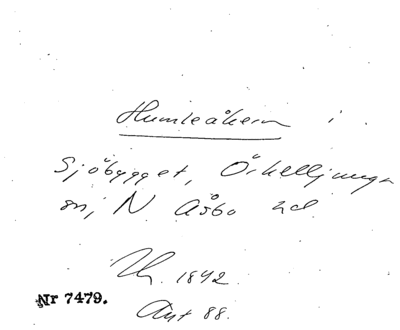 Humleåkern i
Sjöbygget, Örkelljunga
sn, N Åsbo hd
Th. 1842.
Nr 7479.
Ant 88.